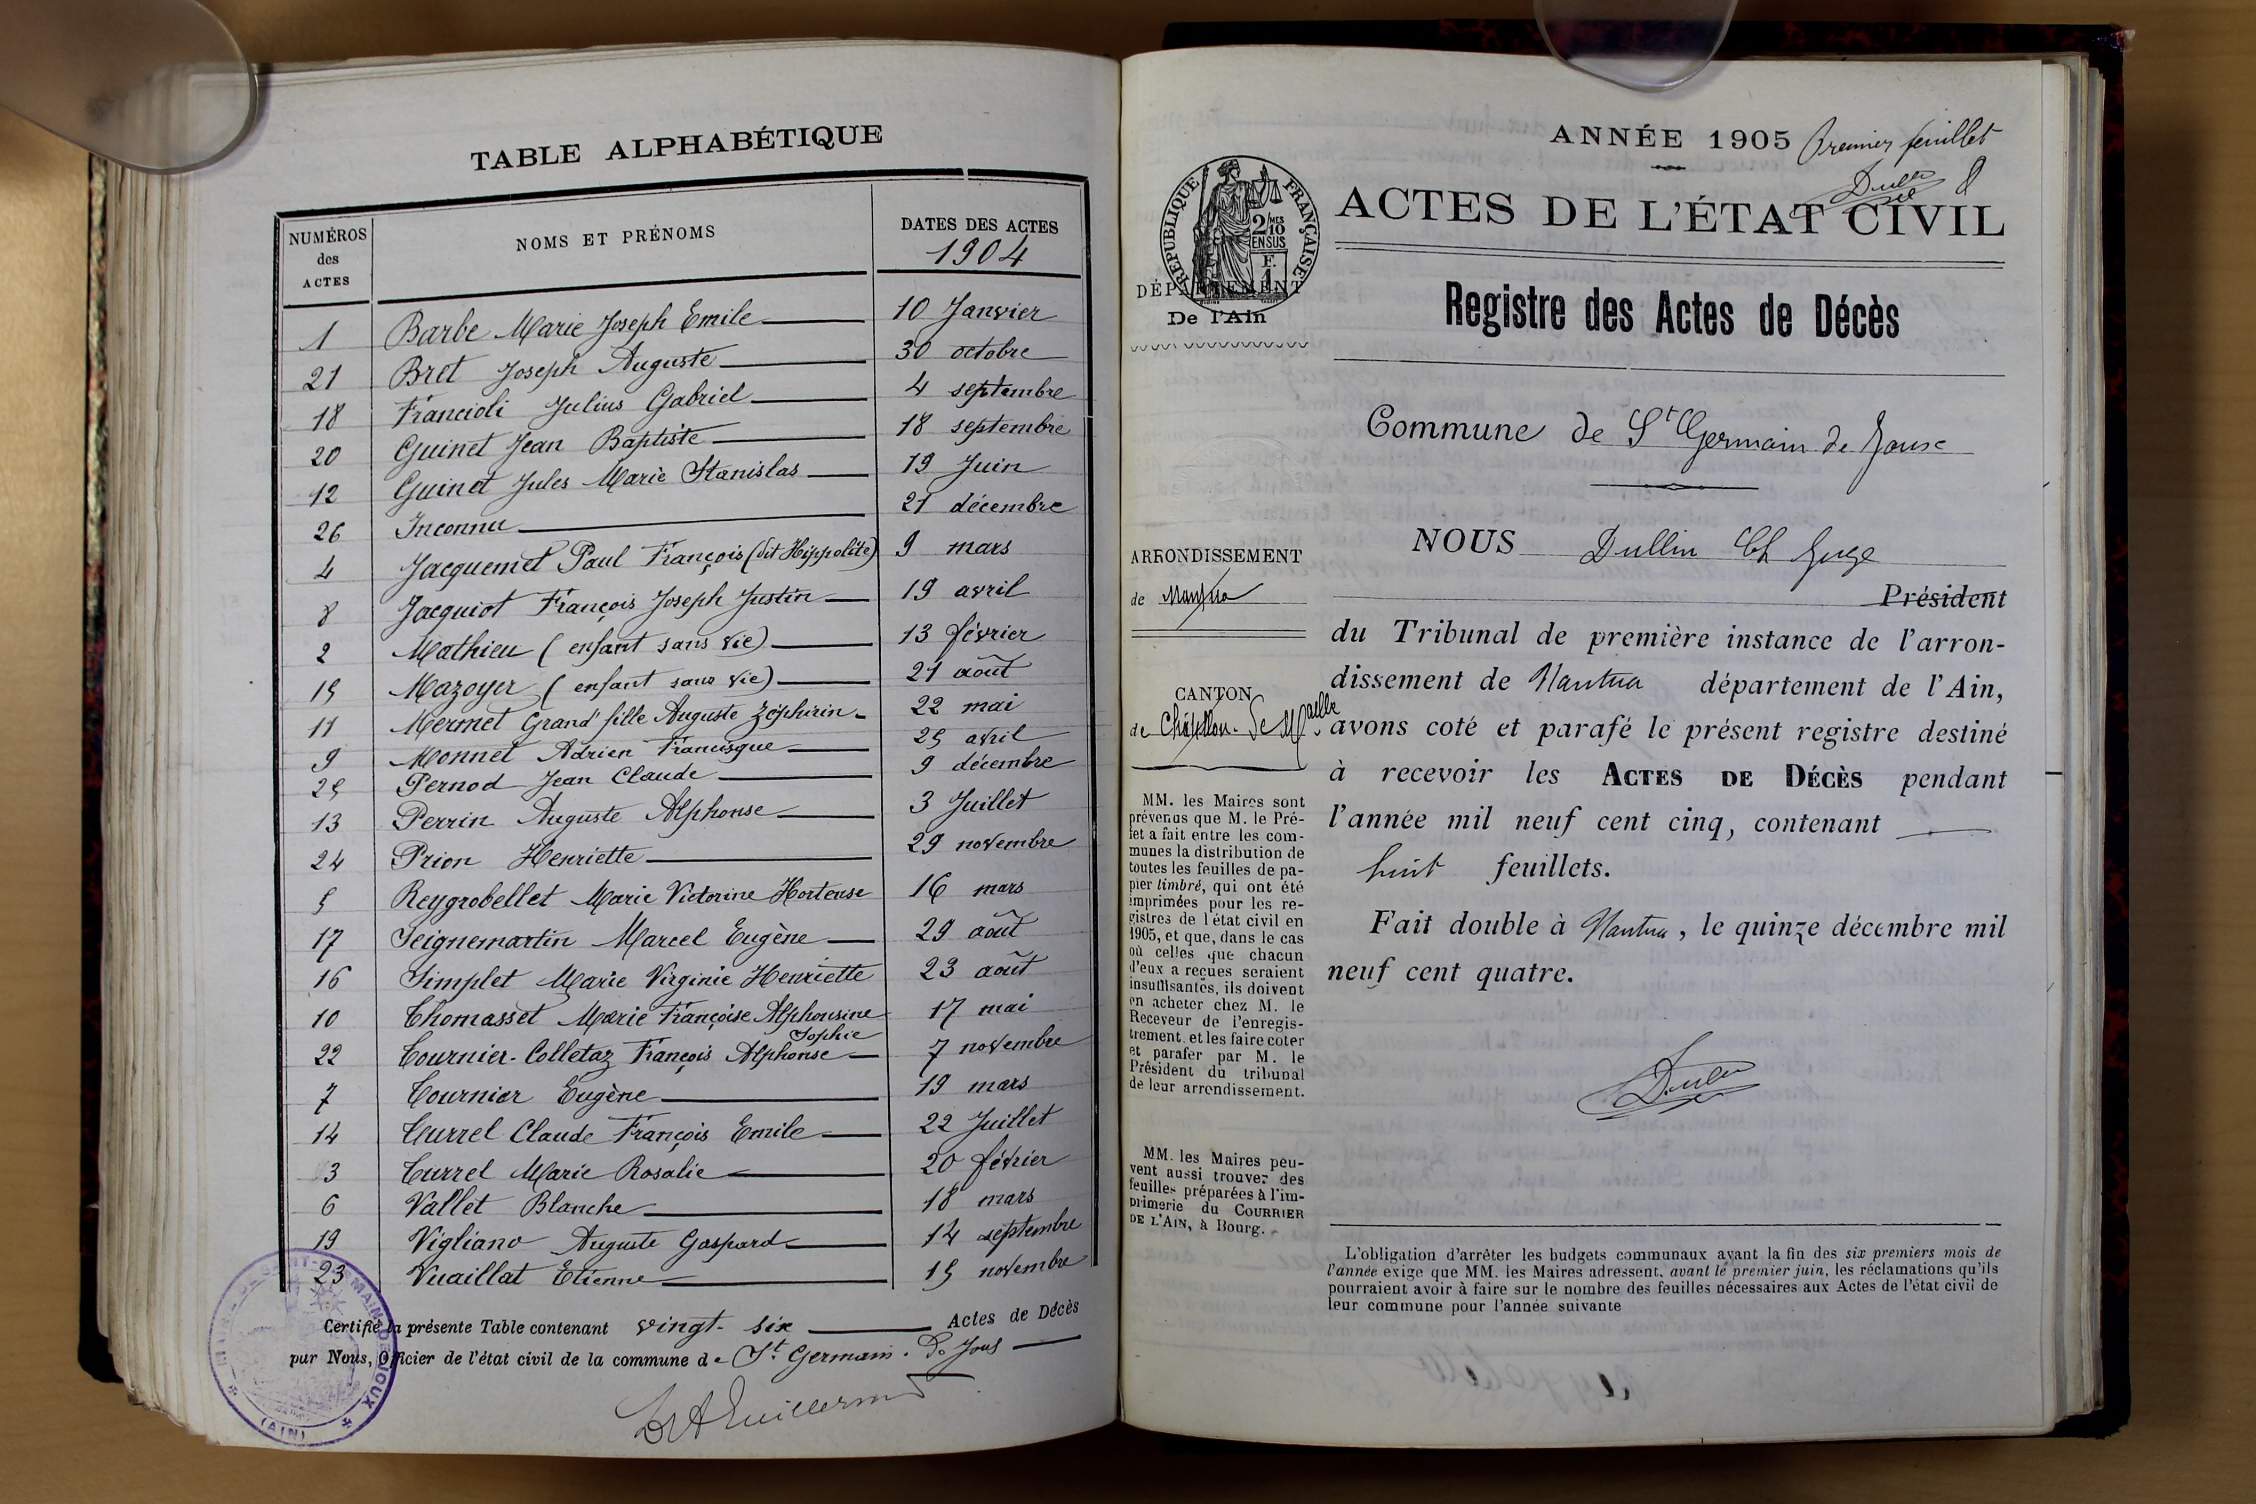 TABLE ALPHABÉTIQUE
NUMÉROS des ACTES
NOMS ET PRÉNOMS
DATES DES ACTES
1904
1 Barbe Marie Joseph Emile 10 Janvier
21 Bret Joseph Auguste 30 octobre
18 Francioli Julius Gabriel 4 septembre
20 Guinet Jean Baptiste 18 septembre
12 Guinet Jules Marie Stanislas 19 Juin
26 Inconnu 21 décembre
4 Jacquemet Paul François (dit Hippolite) 9 mars
8 Jacquiot François Joseph Justin 19 avril
2 Mathieu (enfant sans vie) 13 février
15 Mazoyer (enfant sans vie) 21 août
11 Mermet Grand'fille Auguste Zéphirin 22 mai
9 Monnet Adrien Francisque 25 avril
25 Pernod Jean Claude 9 décembre
13 Perrin Auguste Alphonse 3 Juillet
24 Prion Henriette 29 novembre
5 Reygrobellet Marie Victorine Hortense 16 mars
17 Seignemartin Marcel Eugène 29 août
16 Simplet Marie Virginie Henriette 23 août
10 Thomasset Marie Françoise Alphonsine Sophie 17 mai
22 Tournier-Colletaz François Alphonse 7 novembre
7 Tournier Eugène 19 mars
14 Turrel Claude François Emile 22 Juillet
3 Turrel Marie Rosalie 20 février
6 Vallet Blanche 18 mars
19 Vigliano Auguste Gaspard 14 septembre
23 Vuaillat Etienne 15 novembre
Certifié la présente Table contenant vingt-six Actes de Décès
par Nous, Officier de l'état civil de la commune de St Germain-de-Joux
(AIN)
ANNÉE 1905 Premier feuillet
Dullin
ACTES DE L'ÉTAT CIVIL
RÉPUBLIQUE FRANÇAISE
2/10 MES
EN SUS
F.
1
DÉPARTEMENT
De l'Ain
Registre des Actes de Décès
Commune de St Germain de Joux
NOUS Dullin Ch Juge
Président
du Tribunal de première instance de l'arron-
dissement de Nantua département de l'Ain,
avons coté et parafé le présent registre destiné
à recevoir les ACTES DE DÉCÈS pendant
l'année mil neuf cent cinq, contenant
huit feuillets.
Fait double à Nantua, le quinze décembre mil
neuf cent quatre.
Dullin
ARRONDISSEMENT
de Nantua
CANTON
de Châtillon-de-Maille
MM. les Maires sont
prévenus que M. le Pré-
fet a fait entre les com-
munes la distribution de
toutes les feuilles de pa-
pier timbré, qui ont été
imprimées pour les re-
gistres de l'état civil en
1905, et que, dans le cas
où celles que chacun
d'eux a reçues seraient
insuffisantes, ils doivent
en acheter chez M. le
Receveur de l'enregis-
trement et les faire coter
et parafer par M. le
Président du tribunal
de leur arrondissement.
MM. les Maires peu-
vent aussi trouver des
feuilles préparées à l'im-
primerie du COURRIER
DE L'AIN, à Bourg.
L'obligation d'arrêter les budgets communaux avant la fin des six premiers mois de
l'année exige que MM. les Maires adressent, avant le premier juin, les réclamations qu'ils
pourraient avoir à faire sur le nombre des feuilles nécessaires aux Actes de l'état civil de
leur commune pour l'année suivante